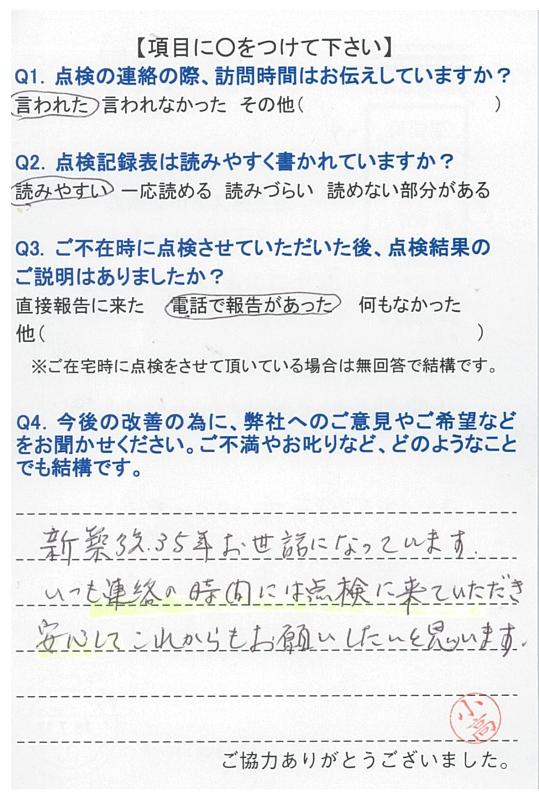 【項目に〇をつけて下さい】
Q1. 点検の連絡の際、訪問時間はお伝えしていますか？
言われた 言われなかった その他（　　　）
Q2. 点検記録表は読みやすく書かれていますか？
読みやすい 一応読める 読みづらい 読めない部分がある
Q3. ご不在時に点検させていただいた後、点検結果の
ご説明はありましたか？
直接報告に来た 電話で報告があった 何もなかった
他（　　　）
※ご在宅時に点検をさせて頂いている場合は無回答で結構です。
Q4. 今後の改善の為に、弊社へのご意見やご希望など
をお聞かせください。ご不満やお叱りなど、どのようなこと
でも結構です。
新築 35年お世話になっています.
いつも連絡の時間には点検に来ていただき
安心してこれからもお願いしたいと思います.
小高
ご協力ありがとうございました。